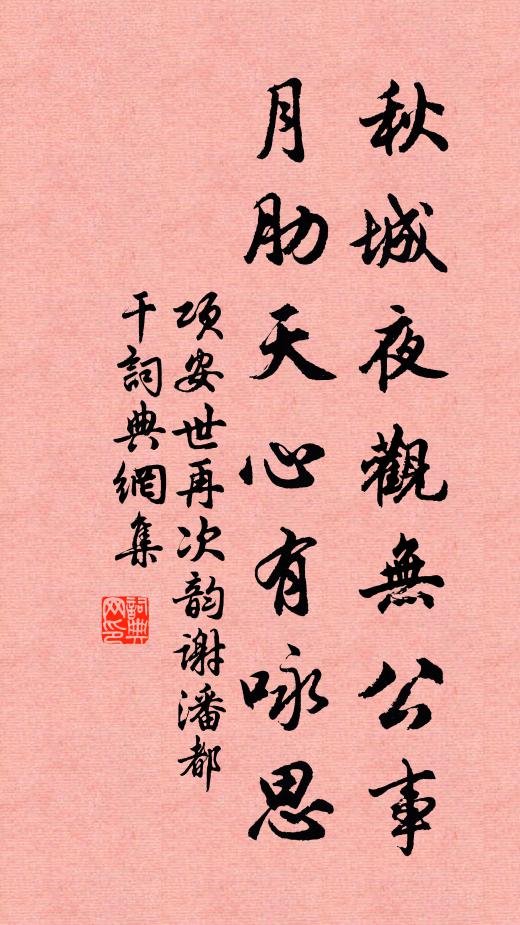 秋城夜觀無公事
月肋天心有咏思
項安世再次韵謝潘都
干詞典網集
詞典网印